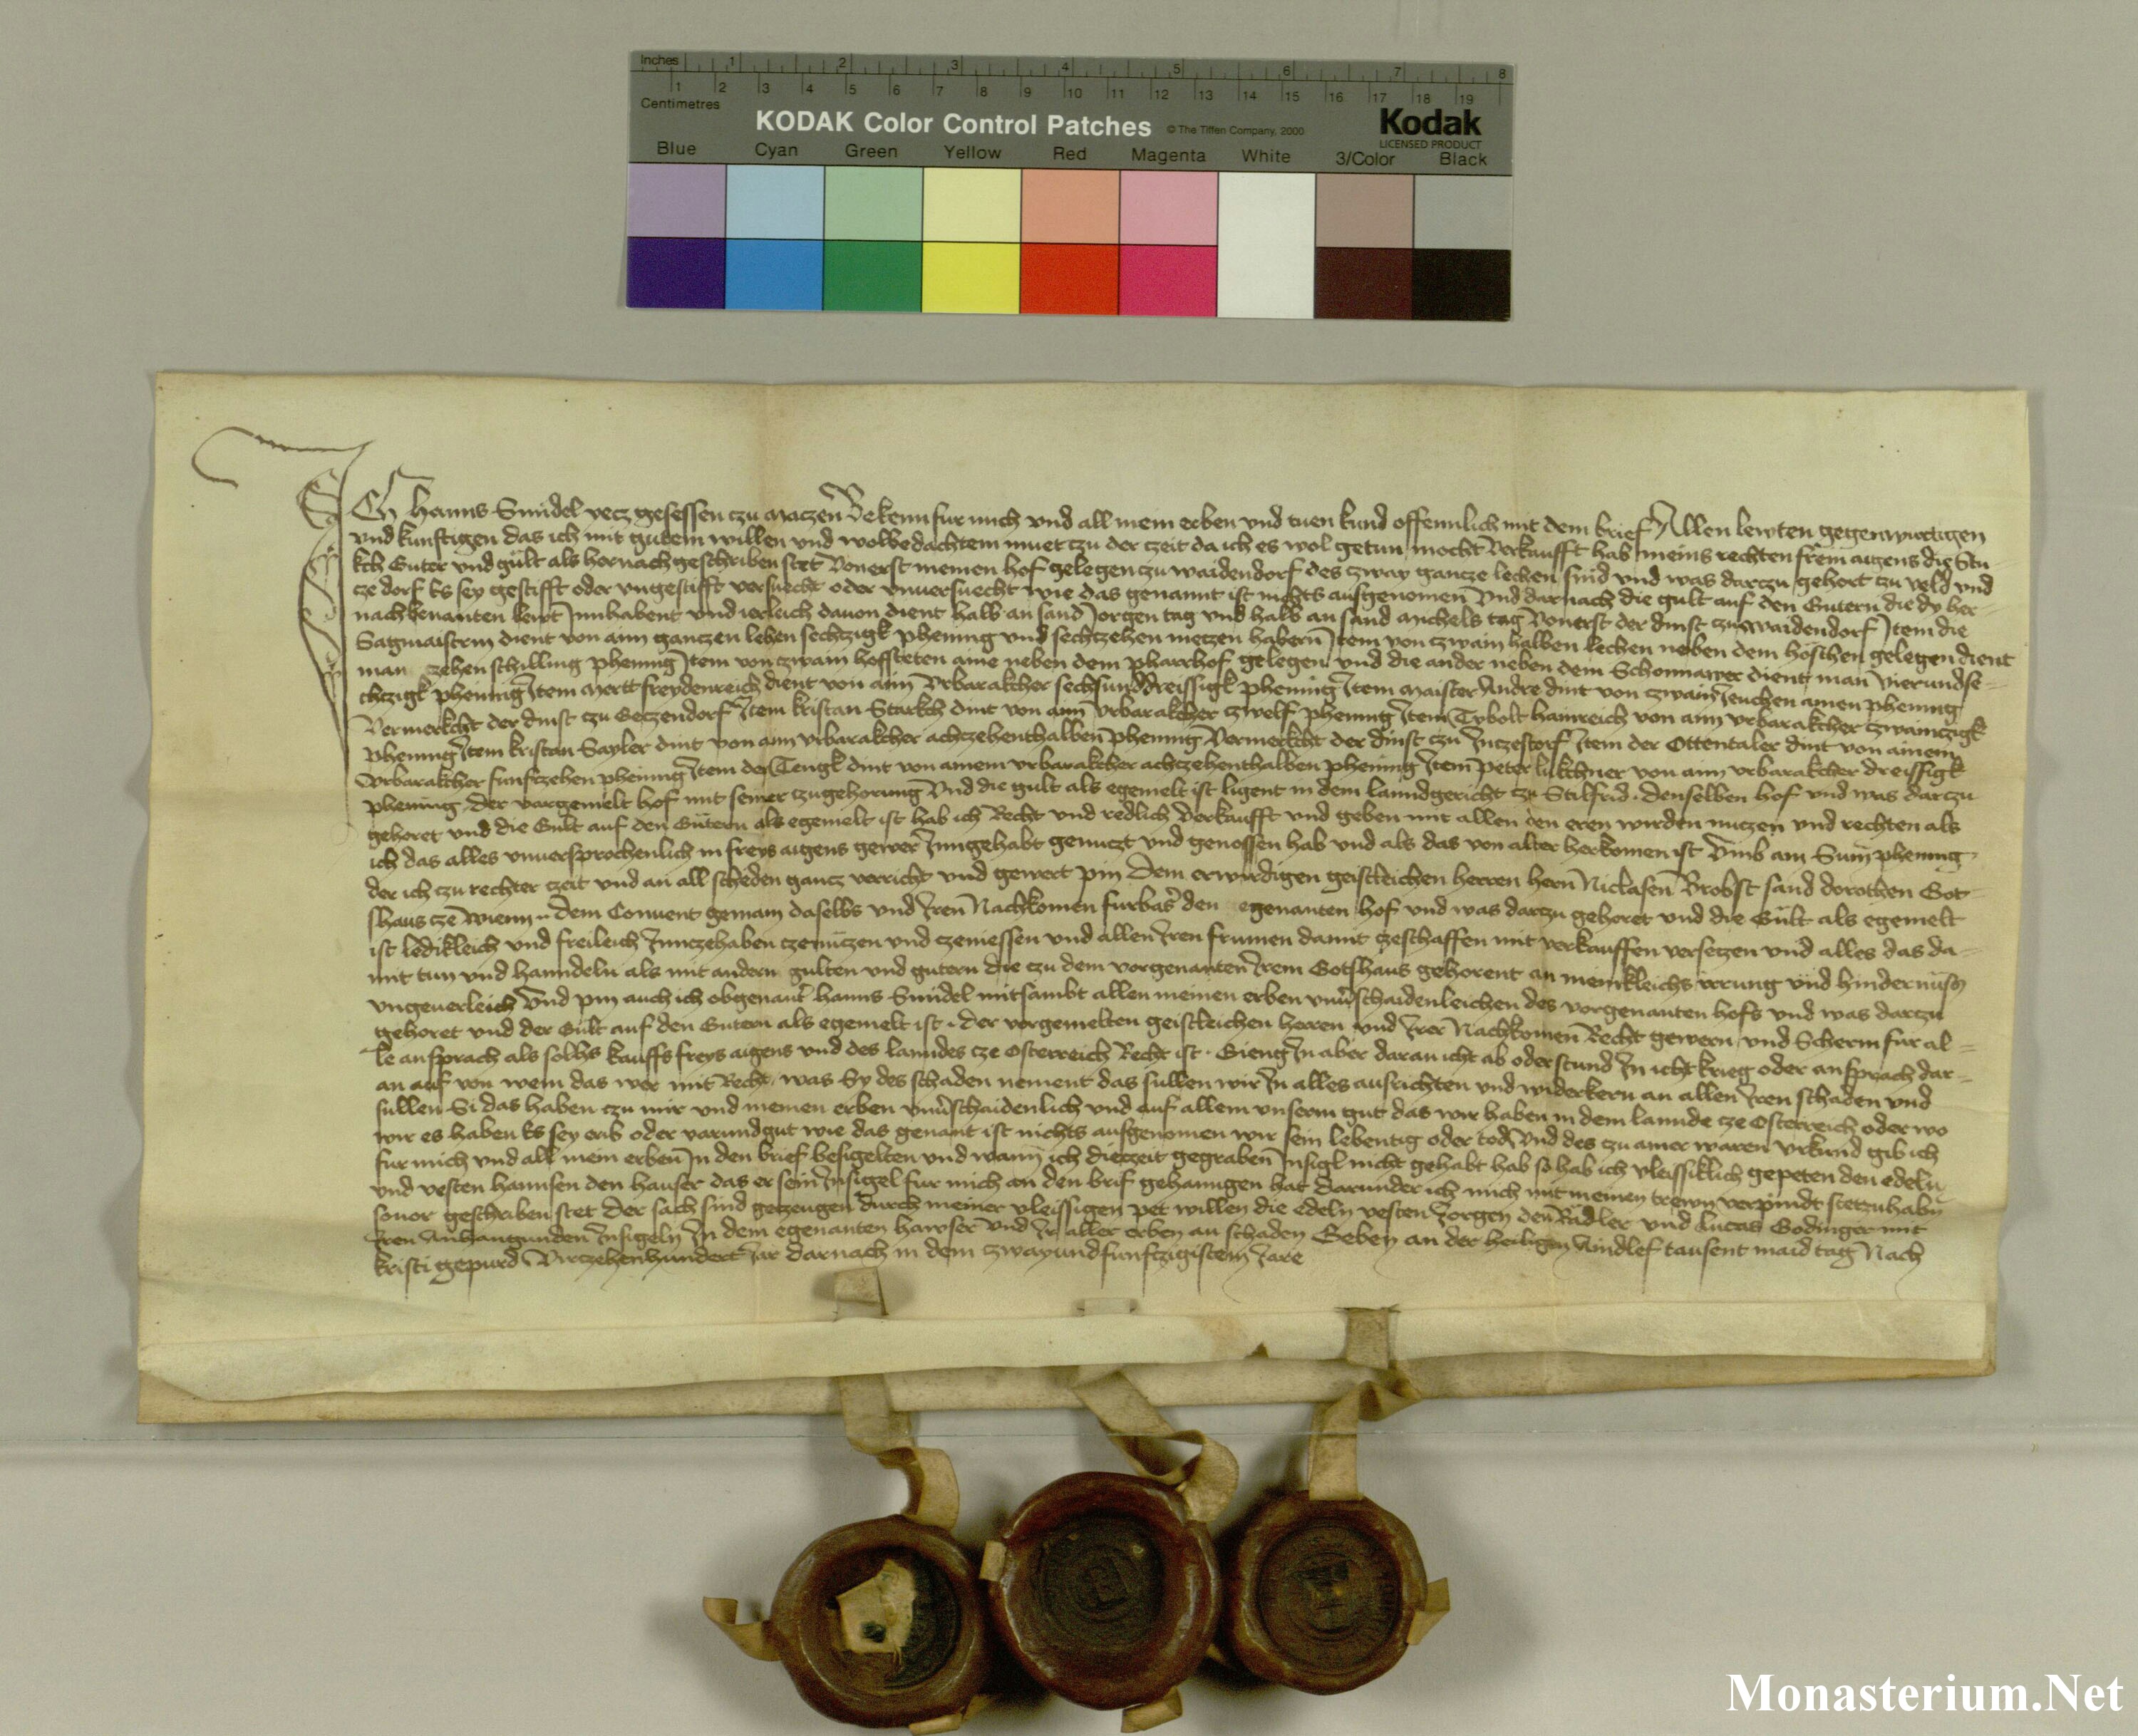 Inches 1 2 3 4 5 6 7 8
1 2 3 4 5 6 7 8 9 10 11 12 13 14 15 16 17 18 19
Centimetres
KODAK Color Control Patches © The Tiffen Company, 2000 Kodak
LICENSED PRODUCT
Blue Cyan Green Yellow Red Magenta White 3/Color Black
Ich Hanns Smidel yecz gesessen czu Maczen Bekenn fur mich vnd all mein erben vnd tuen kund offennlich mit dem brief Allen lewten gegenwurtigen
vnd kunftigen das ich mit gutem willen vnd wolbedachtem muet czu der czeit da ich es wol getun mocht verkaufft hab meins rechten freyn aigens die Stu
kch Guter vnd gült als hernach geschriben stet Vonerst meinen hof gelegen zu waidendorf des zway gancze lechen sind vnd was darczu gehort zu veld vnd
ze dorf Es sey gestifft oder vngestifft versuecht oder vnuersuecht wie das genannt ist nichts ausgenomen Vnd darnach die gult auf den Gutern die dy her-
nachbenanten lewt Innhabent vnd ierleich dauon dient halb an sand Jorgen tag vnd halb an sand Michels tag Vonerst der dinst zu Waidendorf Item die
Sagmaistrin dient von aim ganczen lehen sechtzigk phening vnd sechtzehen meczen habern Item von zwain halben lechen neben dem höfchen gelegen dient
man zehen schilling phening Item von zwain hoffsteten aine neben dem pharrhof gelegen vnd die ander neben dem Schonnawer dient man vierundse-
chczigk phening Item Mertt freydenreich dient von aim Vrbarakcher sechsunddreissigk phening Item Maister Andre dint von zwain Jeuchen ainen phening
Vermerkcht der dinst czu Geczendorf Item kristan Starkch dint von aim vrbarakcher zwelf phening Item Tybolt hainreich von aim vrbarakcher zwainczigk
phening Item kristan Sayler dint von aim vrbarakcher achtzehenthalben phening Vermerkcht der dinst czu Inczestorf Item der Ottentaler dint von ainem
Vrbarakcher funftzehen phening Item der Tengk dint von ainem vrbarakcher achtzehenthalben phening Item peter lukchner von aim vrbarakcher dreissigk
phening der vorgemelt hof mit seiner zugehorung Vnd die gult als egemelt ist ligent in dem lanndgericht zu Stilfrid. denselben hof vnd was darczu
gehoret vnd die Gult auf den Gütern als egemelt ist hab ich Recht vnd redlich verkaufft vnd geben mit allen den eren wirden nuczen vnd rechten als
ich das alles vnuersprochenlich in freys aigens gewer Inngehabt genuczt vnd genossen hab vnd als das von alter herkomen ist Vmb ain Sum phening
der ich czu rechter czeit vnd an all scheden gancz verricht vnd gewert pin Dem erwirdigen geistleichen herren hern Niclasen Brobst sand dorothen Got-
shaus cze Wienn dem Conuent gemain daselbs vnd Iren Nachkomen furbas den egenanten hof vnd was darczu gehoret vnd die Gült als egemelt
ist ledikleich vnd freileich Innczehaben czenüczen vnd czeniessen vnd allen Iren frumen damit czeschaffen mit verkauffen verseczen vnd alles das da-
mit tun vnd hanndeln als mit andern gulten vnd gutern die czu dem vorgenanten Irem Gotshaus gehorent an menikleichs irrung vnd hindernüss
vngeuerleich Vnd pin auch ich obgenanter hanns Smidel mitsambt allen meinen erben vnuerschaidenleichen des vorgenanten hofs vnd was darczu
gehoret vnd der Gült auf den Gutern als egemelt ist. der vorgemelten geistleichen herren vnd Irer Nachkomen Recht gewern vnd Scherm für al-
le ansprach als solhs kauffs freys aigens vnd des lanndes cze Osterreich Recht ist. Gieng In aber daran icht ab oder stund In icht krieg oder ansprach dar-
an auf von wem das wer mit Recht was Sy des schaden nement das sullen wir In alles ausrichten vnd widerkern an allen Iren schaden vnd
sullen Si das haben czu mir vnd meinen erben vnuerschaidenlich vnd auf allem vnserm gut das wir haben in dem lannde cze Osterreich oder wo
wir es haben Es sey erib oder varundgut wie das genant ist nichts ausgenomen wir sein lebentig oder tod Vnd des zu ainer waren vrkund gib ich
fur mich vnd all mein erben In den brief besigelten vnd wann ich dieczeit gegraben Insigl nicht gehabt hab so hab ich vleissiklich gepeten den edeln
vnd vesten hannsen den hauser das er sein Insigel fur mich an den brif gehanngen hat darunder ich mich mit meinen trewn verpindt stetzuhabn
souor geschriben stet Der sach sind geczeugen durch meiner vleissigen pet willen die edeln vesten Jorgen den Rädler vnd Lucas Godinger mit
Iren Anhangunden Insigeln In dem egenanten hawser vnd Ir aller erben an schaden Geben an der heiligen Aindlef tausent maid tag Nach
kristi gepurd Virczehenhundert Jar darnach in dem zwayundfunfczigistem Jare
Monasterium.Net